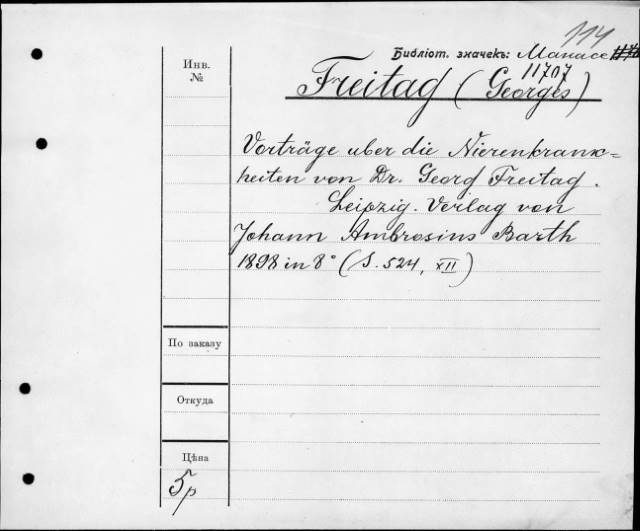 114
Библіот. значекъ:
11707
Инв.
№
Freitag (Georges)
Vorträge uber die Nierenkrank=
heiten von Dr. Georg Freitag.
Leipzig. Verlag von
Johann Ambrosius Barth
1898 in 8° (S. 524, XII)
По заказу
Откуда
Цѣна
5р